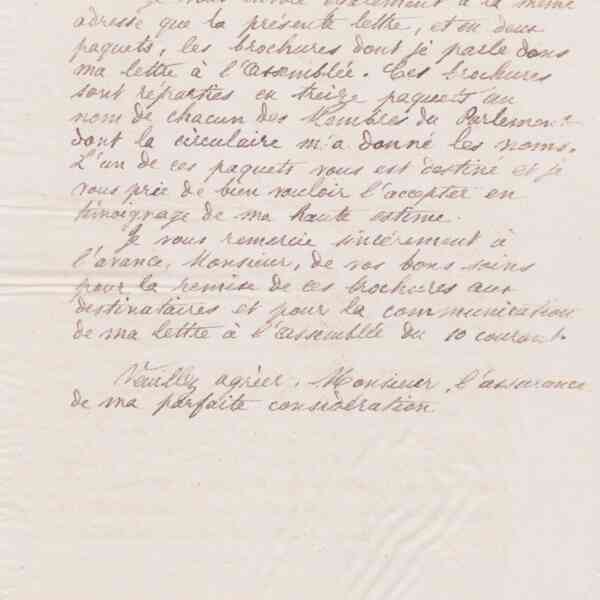 Je vous envoie également à la même
adresse que la présente lettre, et en deux
paquets, les brochures dont je parle dans
ma lettre à l'assemblée. Ces brochures
sont réparties en treize paquets au
nom de chacun des Membres du Parlement
dont la circulaire m'a donné les noms.
L'un de ces paquets vous est destiné et je
vous prie de bien vouloir l'accepter en
témoignage de ma haute estime.
Je vous remercie sincèrement à
l'avance, Monsieur, de vos bons soins
pour la remise de ces brochures aux
destinataires et pour la communication
de ma lettre à l'assemblée du 10 courant.
Veuillez agréer, Monsieur, l'assurance
de ma parfaite considération